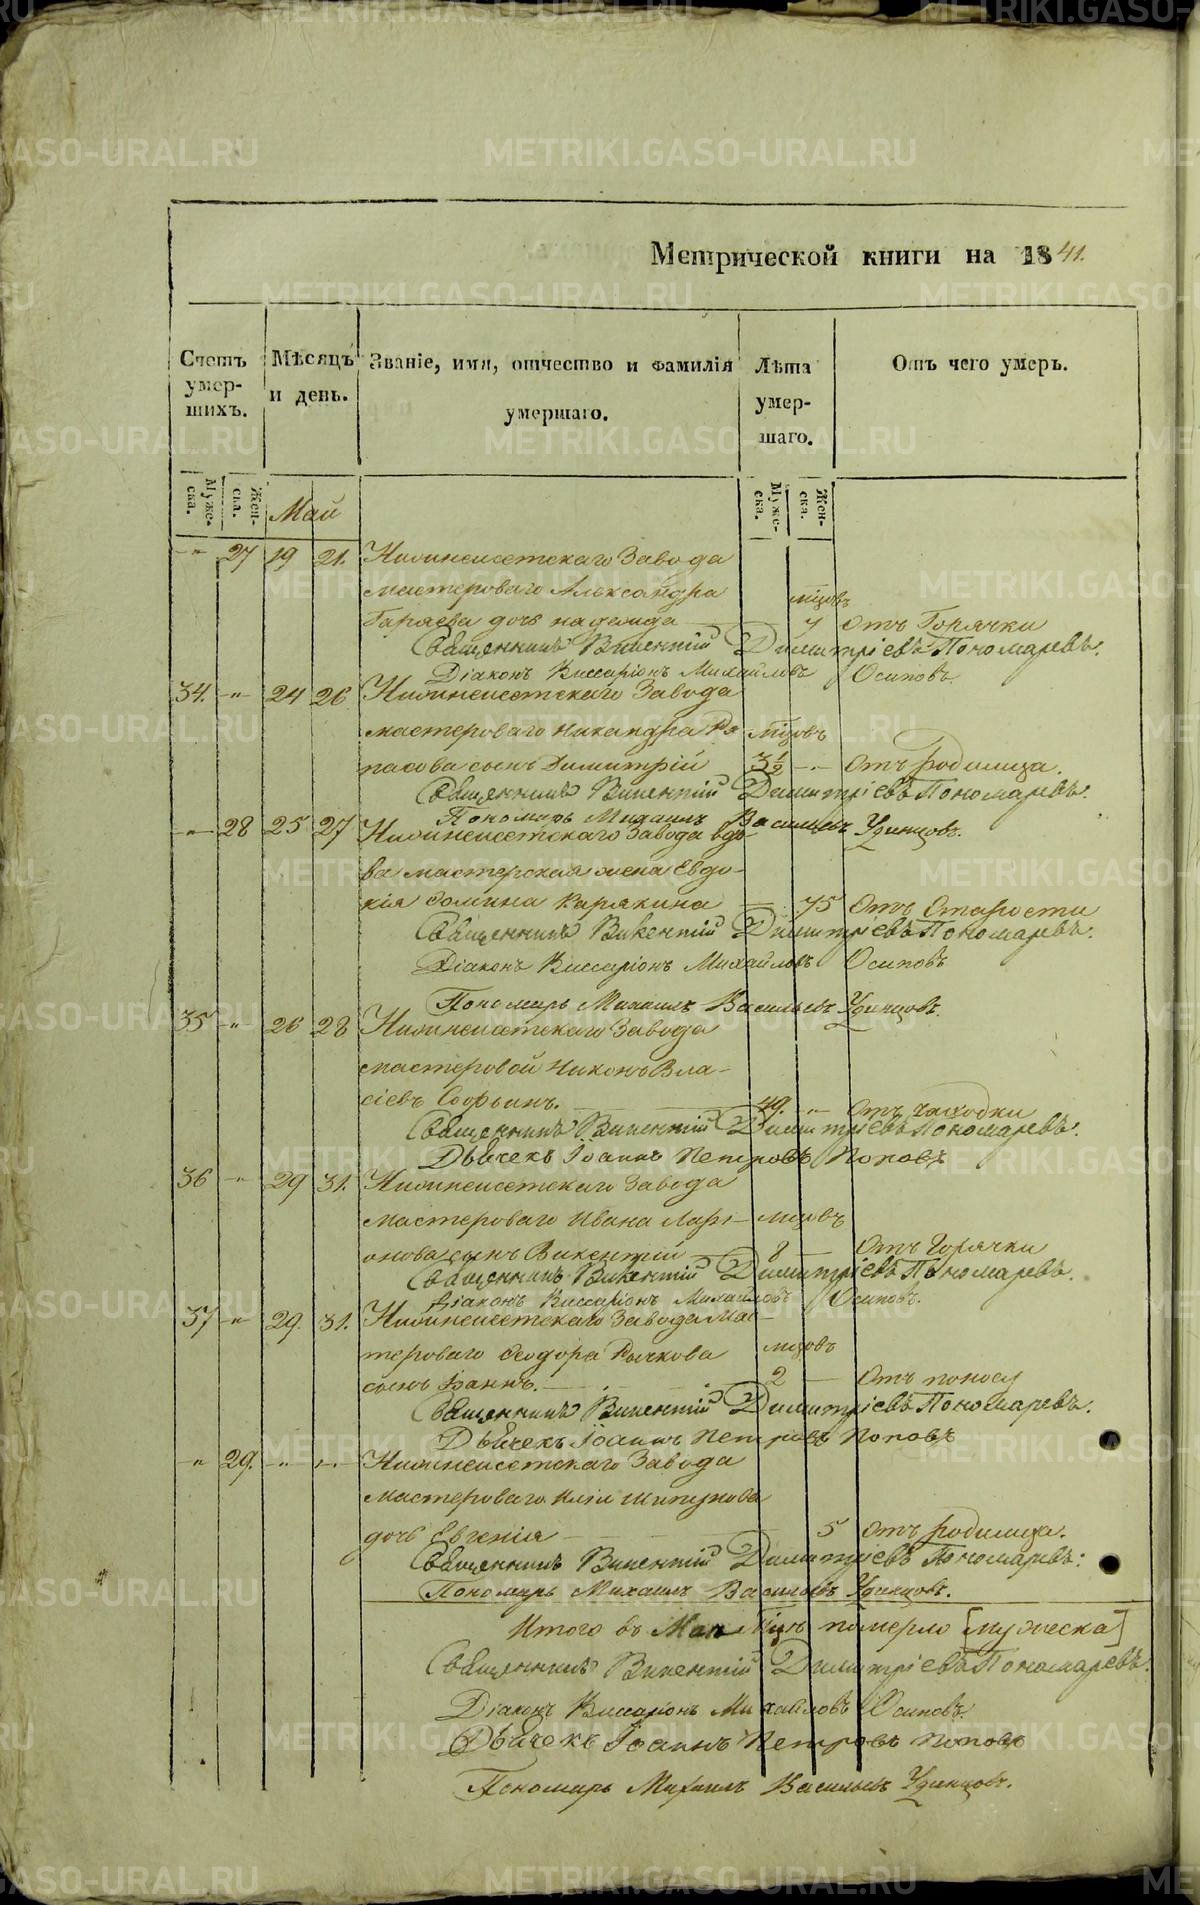 METRIKI.GASO-URAL.RU
Метрической книги на 1841.
Счетъ умер-шихъ.
Мѣсяцъ и день.
Званіе, имя, отчество и фамилія умершаго.
Лѣта умер-шаго.
Отъ чего умеръ.
Муже-ска.
Жен-ска.
Май
Муже-ска.
Жен-ска.
-"- 27 19 21. Нижнеисетскаго Завода
мастероваго Александра
мцовъ
Гаряева дочь надежда 7 Отъ Горячки
Священникъ Викентій Димитріевъ Пономаревъ.
Діаконъ Виссаріонъ Михайловъ Осиповъ.
34. -"- 24 26 Нижнеисетскаго Завода
мастероваго Никандра Ря- мцовъ
пасова сынъ Димитрій 3½ -"- Отъ родимца.
Священникъ Викентій Димитріевъ Пономаревъ.
Пономарь Михаилъ Васильевъ Удинцовъ.
-"- 28 25 27 Нижнеисетскаго Завода вдо-
ва мастерская жена Евдо-
кія Фомина Карякина 75 Отъ Старости
Священникъ Викентій Димитріевъ Пономаревъ.
Діаконъ Виссаріонъ Михайловъ Осиповъ
Пономарь Михаилъ Васильевъ Удинцовъ.
35 -"- 26 28 Нижнеисетскаго Завода
мастеровой Никонъ Вла-
сіевъ Софьинъ. 49. -"- Отъ чахотки
Священникъ Викентій Димитріевъ Пономаревъ.
Дьячекъ Іоаннъ Петровъ Поповъ
36 -"- 29 31. Нижнеисетскаго Завода
мастероваго Ивана Лари- мцовъ
онова сынъ Викентій 8 Отъ Горячки
Священникъ Викентій Димитріевъ Пономаревъ.
Діаконъ Виссаріонъ Михайловъ Осиповъ.
37 -"- 29. 31. Нижнеисетскаго Завода Мас-
тероваго Феодора Рычкова мцовъ
сынъ Іоаннъ. 2 Отъ поносу
Священникъ Викентій Димитріевъ Пономаревъ.
Дьячекъ Іоаннъ Петровъ Поповъ
-"- 29. -"- -"- Нижнеисетскаго Завода
Мастероваго Иліи Шипунова
дочь Евгенія 5 Отъ родимца.
Священникъ Викентій Димитріевъ Пономаревъ:
Пономарь Михаилъ Васильевъ Удинцовъ.
Итого въ Маи Мцѣ померло [мужеска]
Священникъ Викентій Димитріевъ Пономаревъ.
Діаконъ Виссаріонъ Михайловъ Осиповъ.
Дьячекъ Іоаннъ Петровъ Поповъ
Пономарь Михаилъ Васильевъ Удинцовъ.